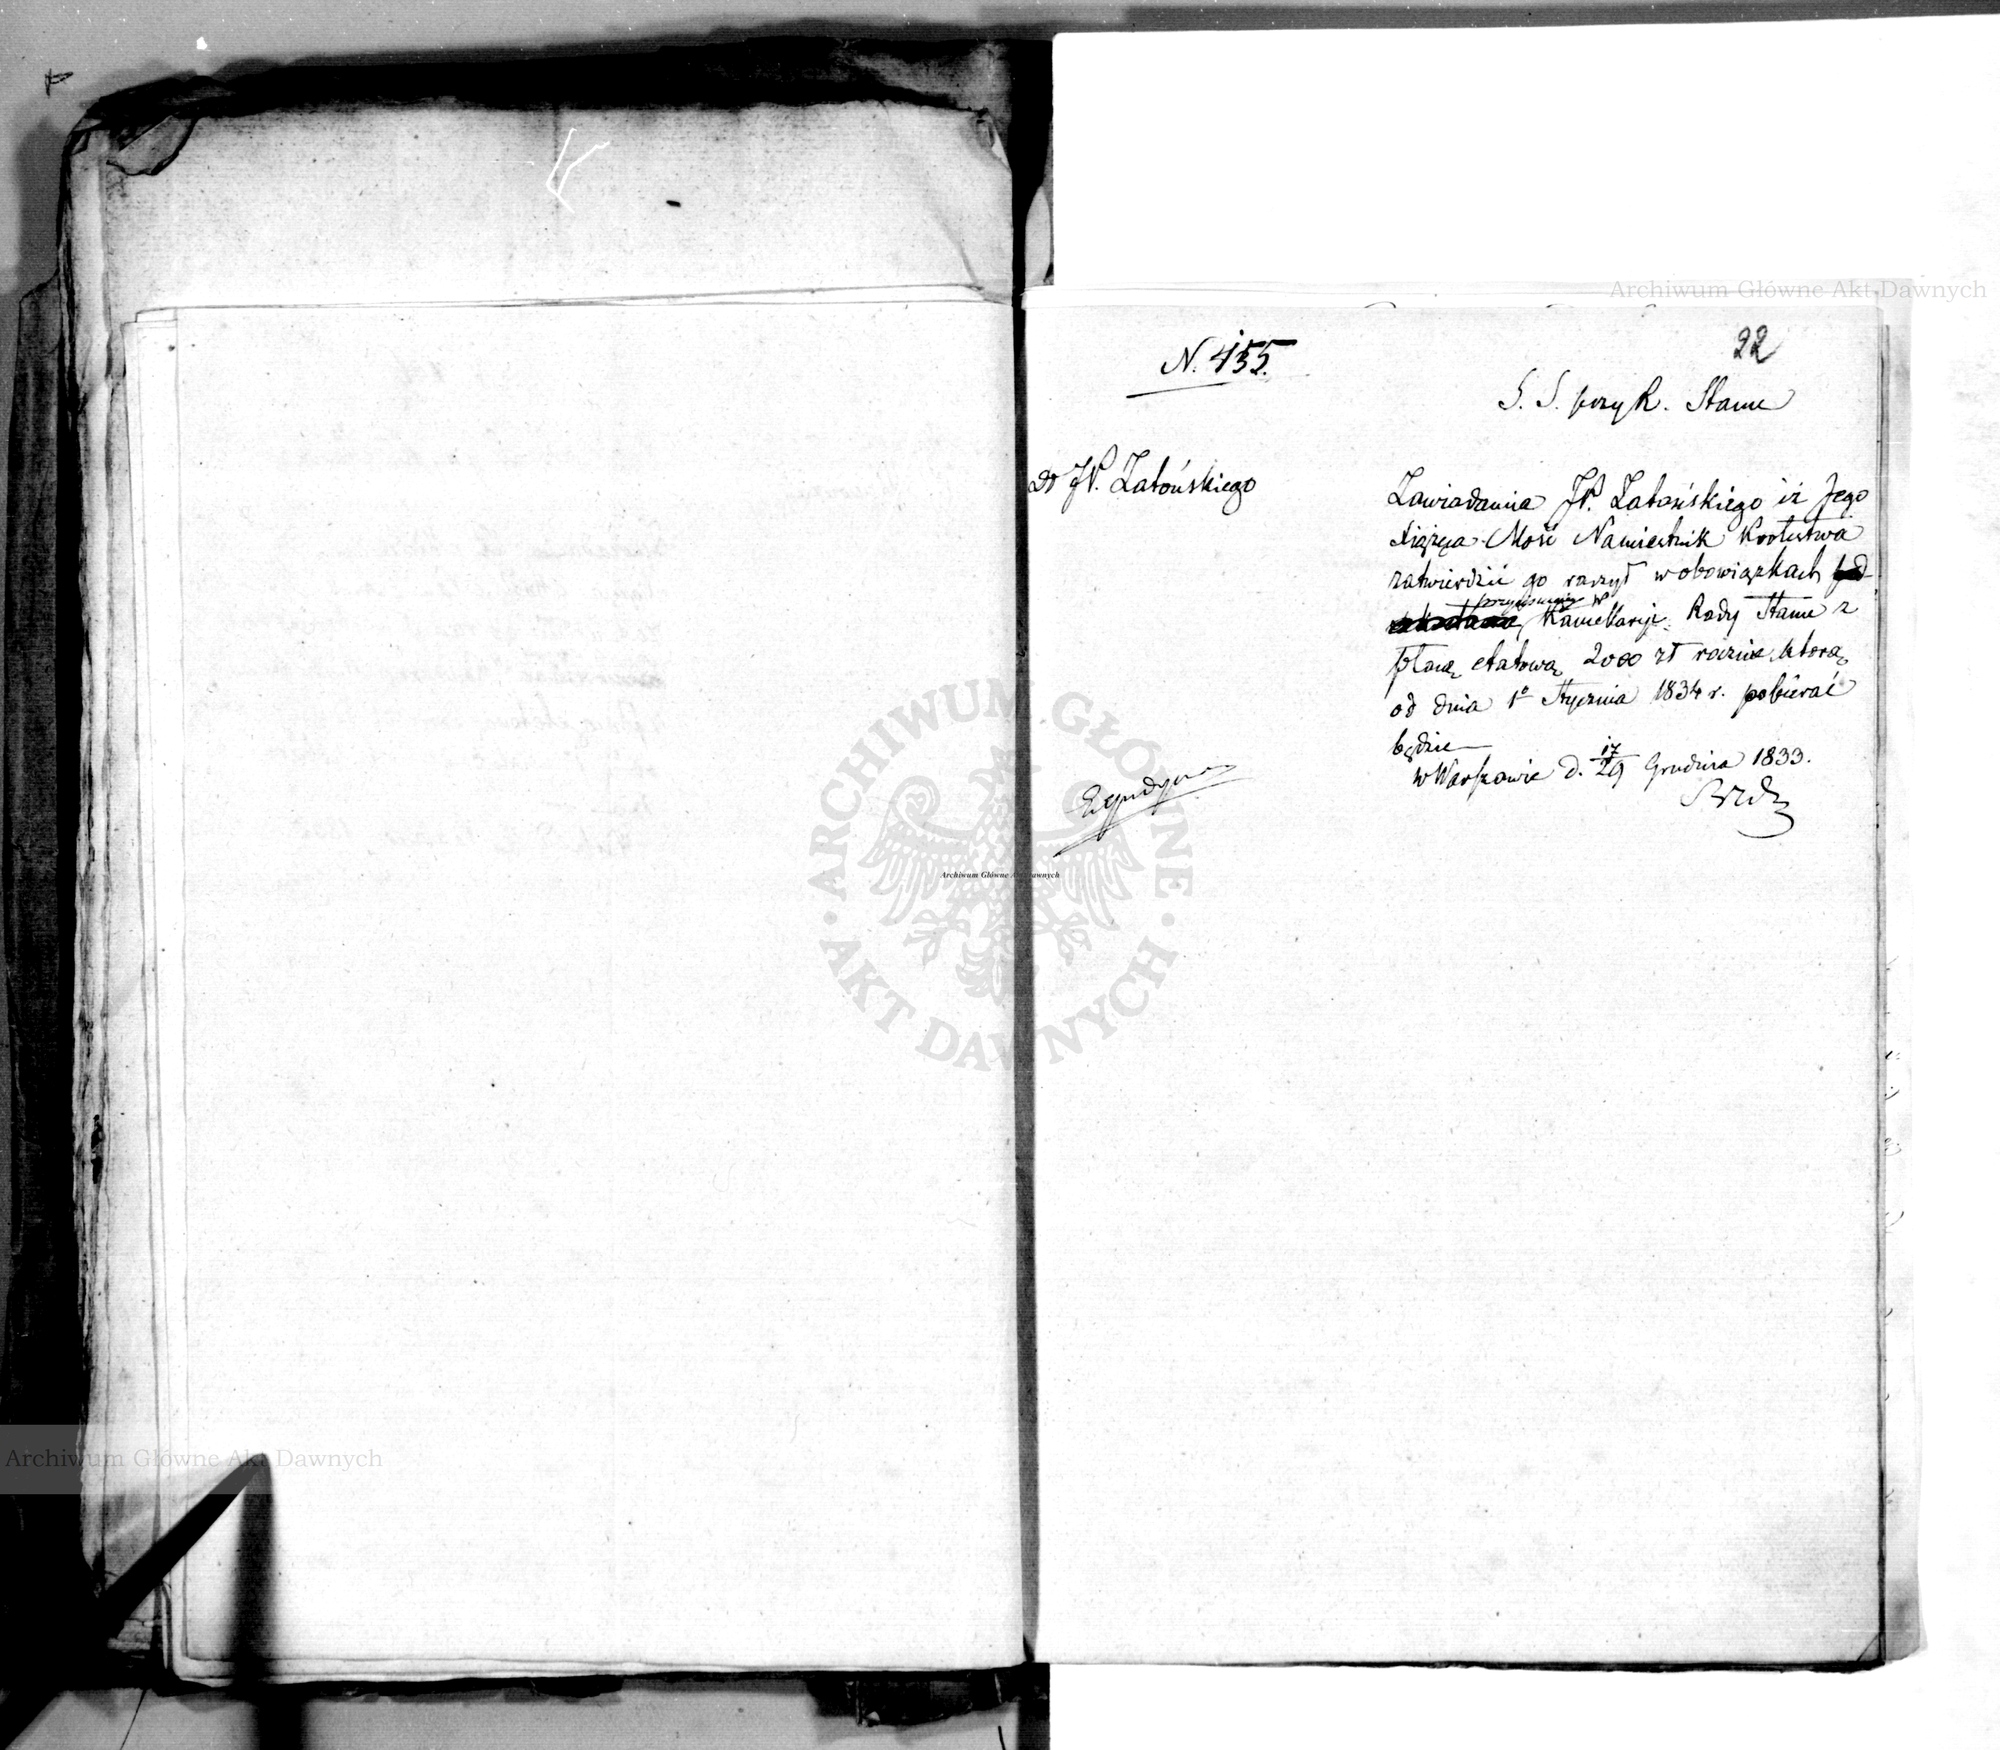 N. 455.
22
S. S. przy R. Stanu
Do JP. Zatońskiego
Zawiadamia JP. Zatońskiego iż Jego
Xiążęca Mość Namiestnik Królestwa
zatwierdzić go raczył w obowiązkach
w
Kancellaryi Rady Stanu z
płacą etatową 2000 zł rocznie którą
od dnia 1o Stycznia 1834 r. pobierać
będzie
w Warszawie d. 17/29 Grudnia 1833.
Archiwum Główne Akt Dawnych
ARCHIWUM GŁÓWNE
AKT DAWNYCH
Archiwum Główne Akt Dawnych
Archiwum Główne Akt Dawnych